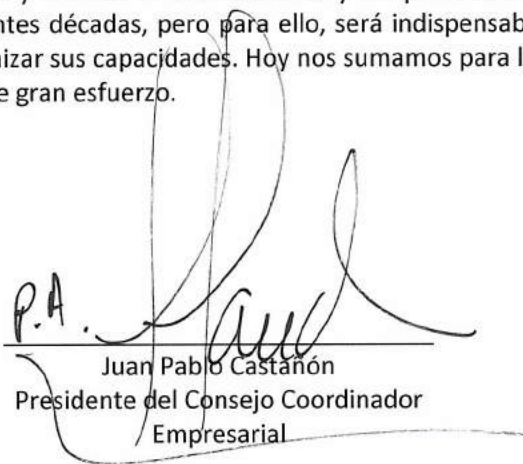 ntes décadas, pero para ello, será indispensab
nizar sus capacidades. Hoy nos sumamos para l
e gran esfuerzo.
P.A.
Juan Pablo Castañón
Presidente del Consejo Coordinador
Empresarial